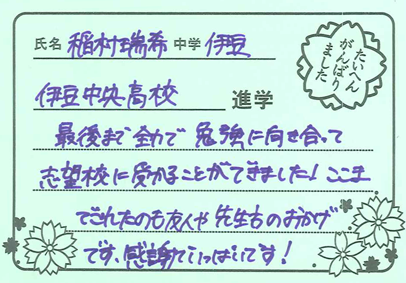 氏名 稲村瑞希 中学 伊豆
伊豆中央高校 進学
たいへん
がんばり
ました
最後まで全力で勉強に向き合って
志望校に受かることができました!ここま
でこれたのも友人や先生方のおかげ
です、感謝でいっぱいです!